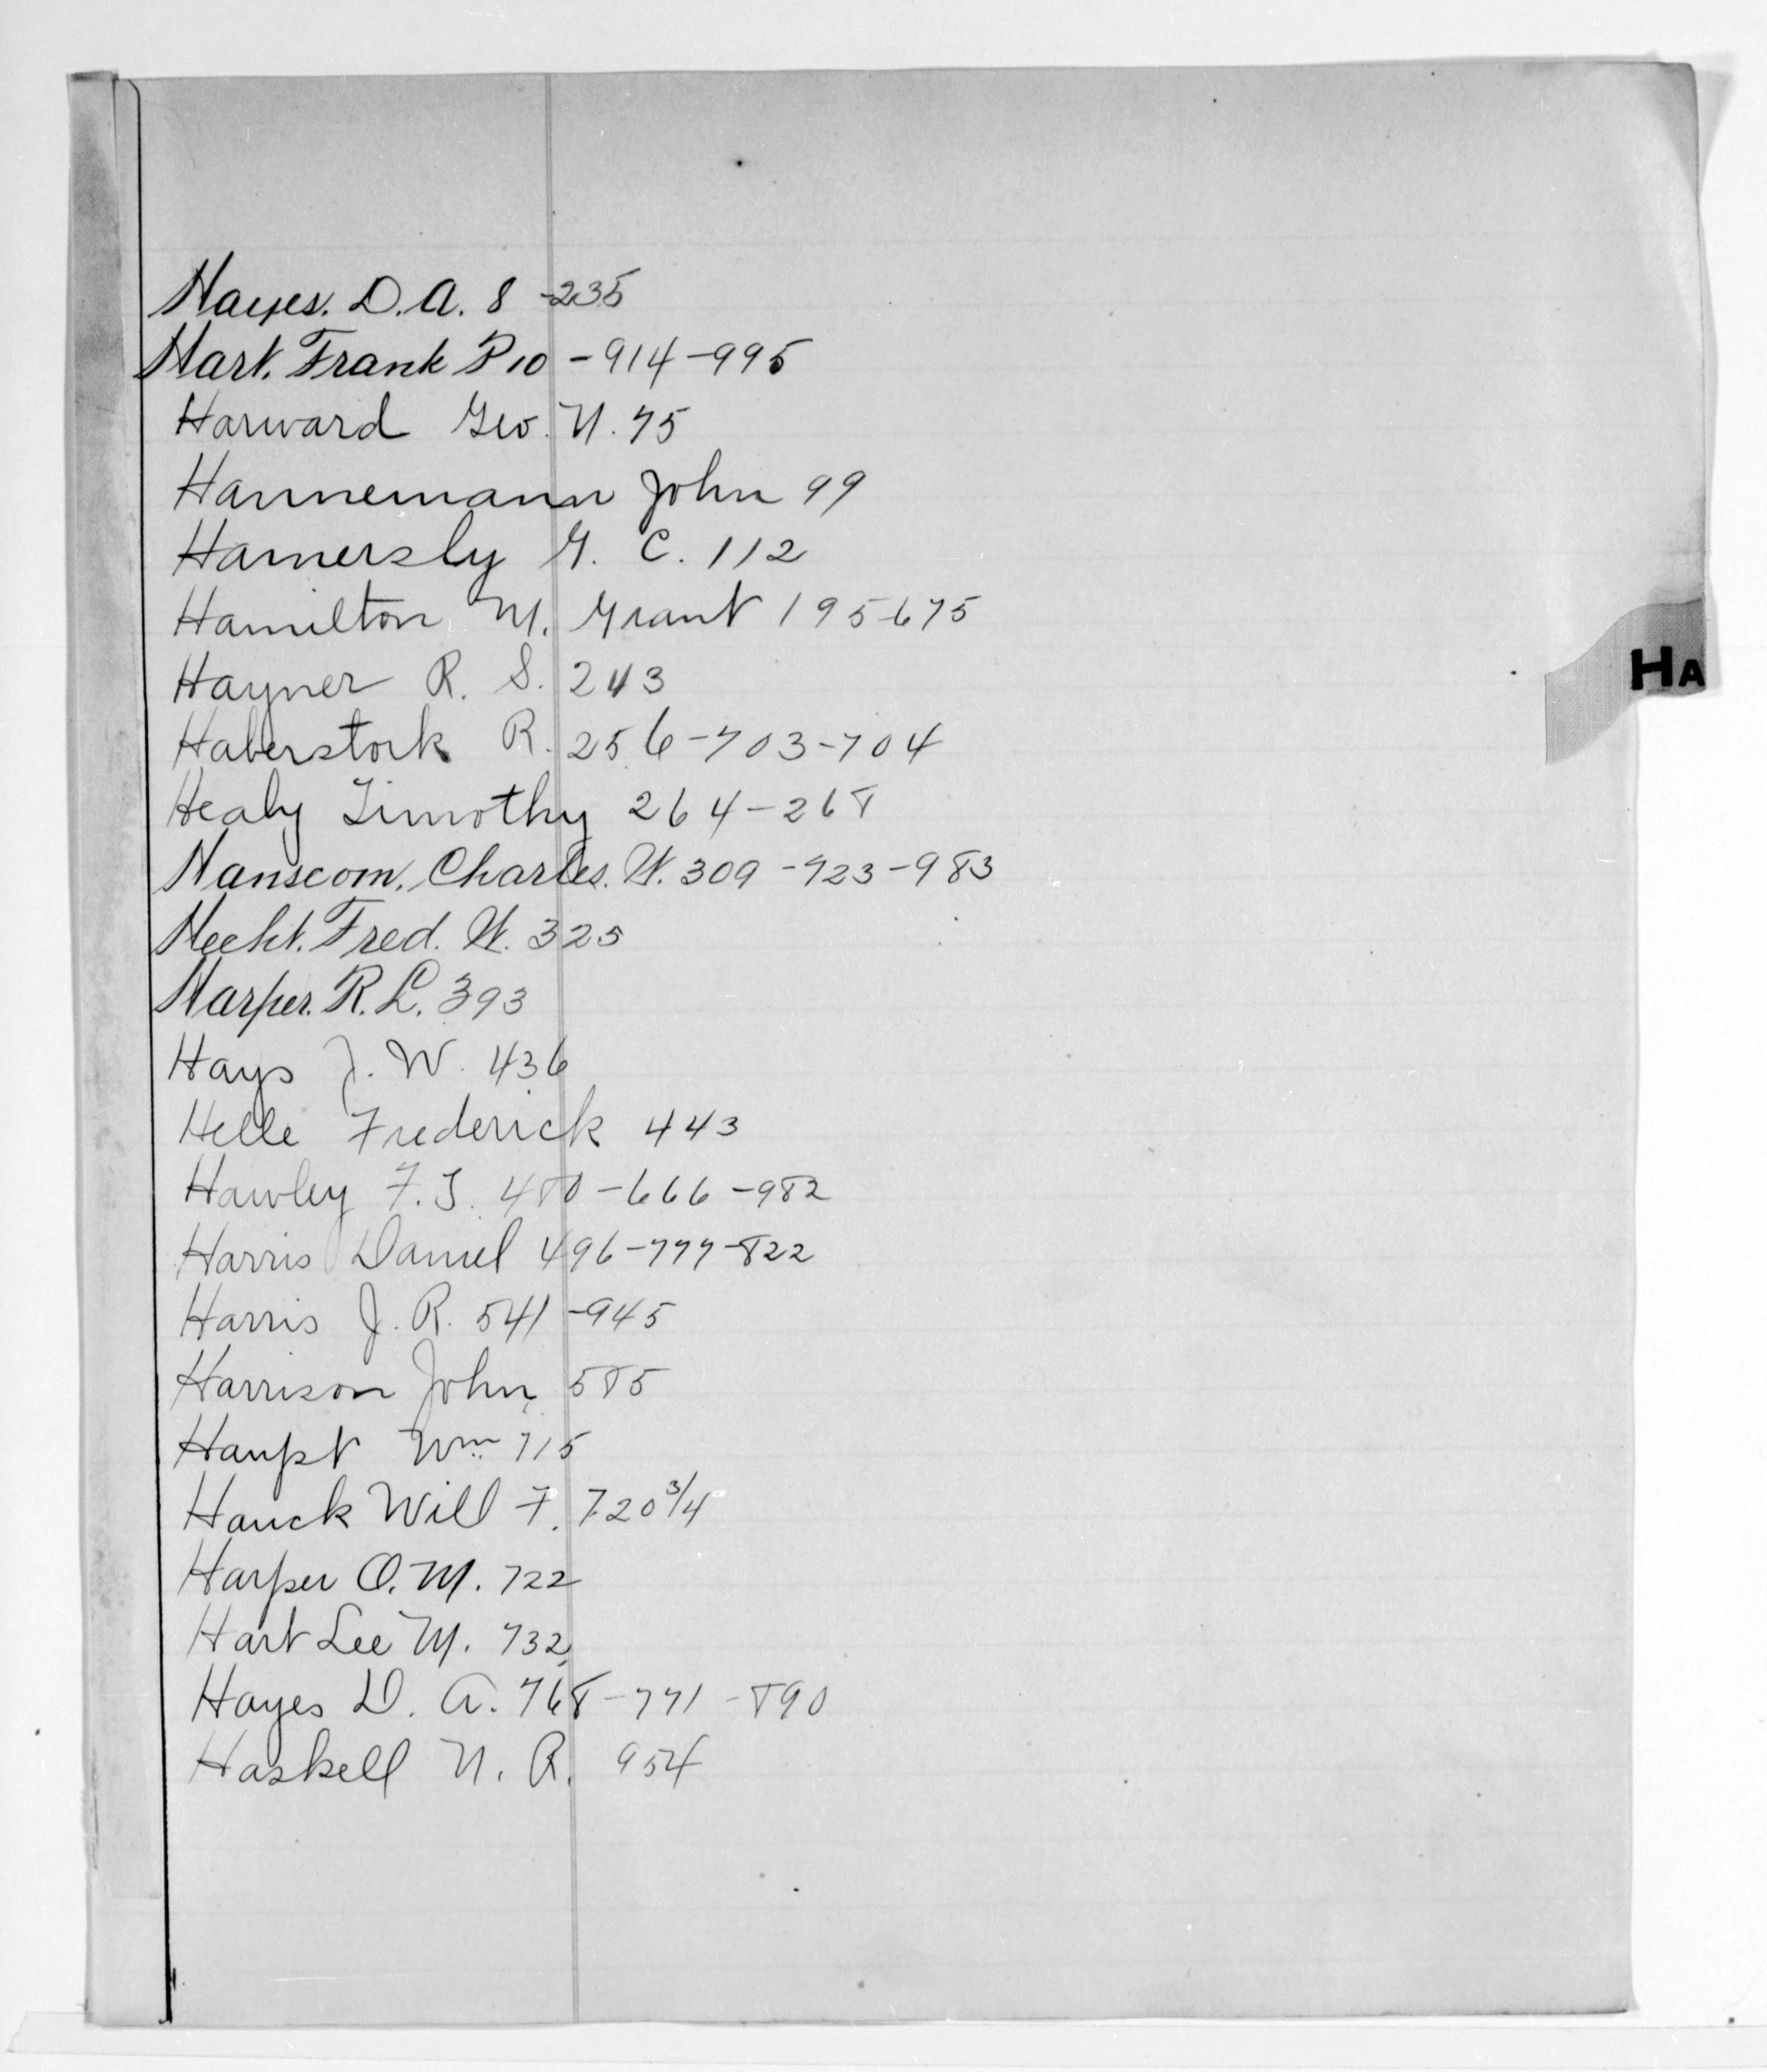 Hayes. D. A. 8 -235
Hart. Frank P 10 - 914 - 995
Harward Geo. N. 75
Hannemann John 99
Hamersly G. C. 112
Hamilton M. Grant 195-675
Hayner R. S. 243
Haberstork R. 256-703-704
HA
Healy Timothy 264-268
Hanscom. Charles. W. 309 - 723 - 983
Hecht. Fred. W. 325
Harper. R. L. 393
Hays J. W. 436
Helle Frederick 443
Hawley F. T. 480 - 666 - 982
Harris Daniel 496-777-822
Harris J. R. 541 - 945
Harrison John 585
Haupt Wm 715
Hauck Will F. 720 3/4
Harper O. M. 722
Hart Lee M. 732
Hayes D. A. 768-771-890
Haskell N. R. 954